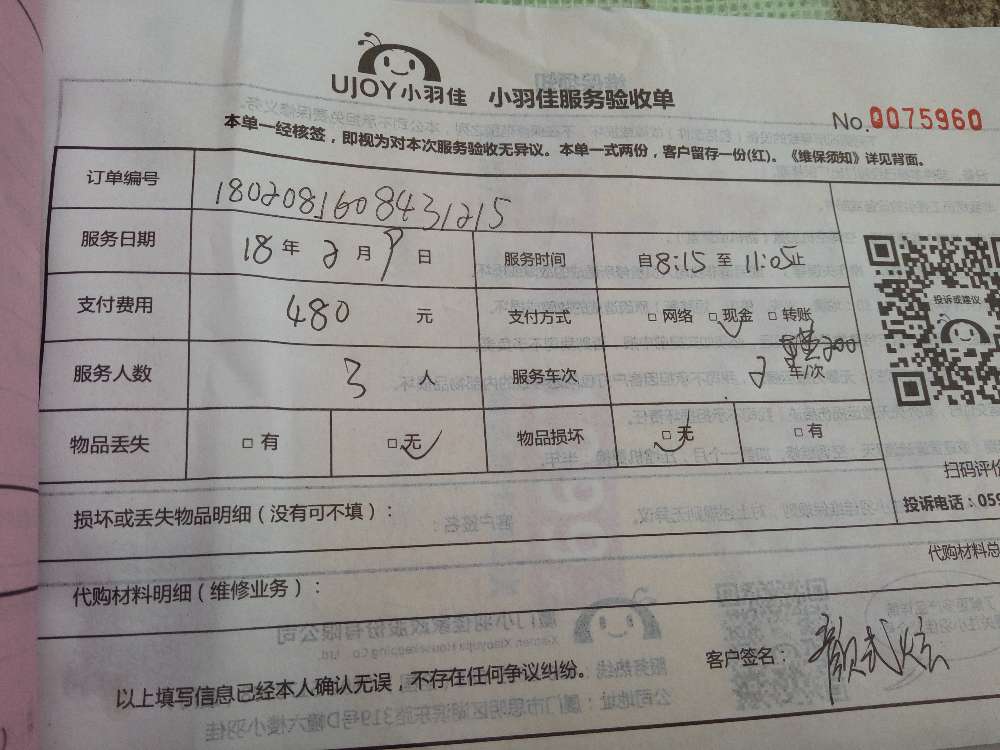 UJOY小羽佳 小羽佳服务验收单
No.0075960
本单一经核签，即视为对本次服务验收无异议。本单一式两份，客户留存一份(红)。《维保须知》详见背面。
订单编号 1802081608431215
服务日期 18年2月9日 服务时间 自8:15至11:05止
投诉或建议
支付费用 480 元 支付方式 □网络 □现金 □转账
200
服务人数 3 人 服务车次 2 车/次
物品丢失 □有 □无 物品损坏 □无 □有
扫码评价
损坏或丢失物品明细（没有可不填）：
投诉电话：059
代购材料总
代购材料明细（维修业务）：
客户签名：颜武炫
以上填写信息已经本人确认无误，不存在任何争议纠纷。